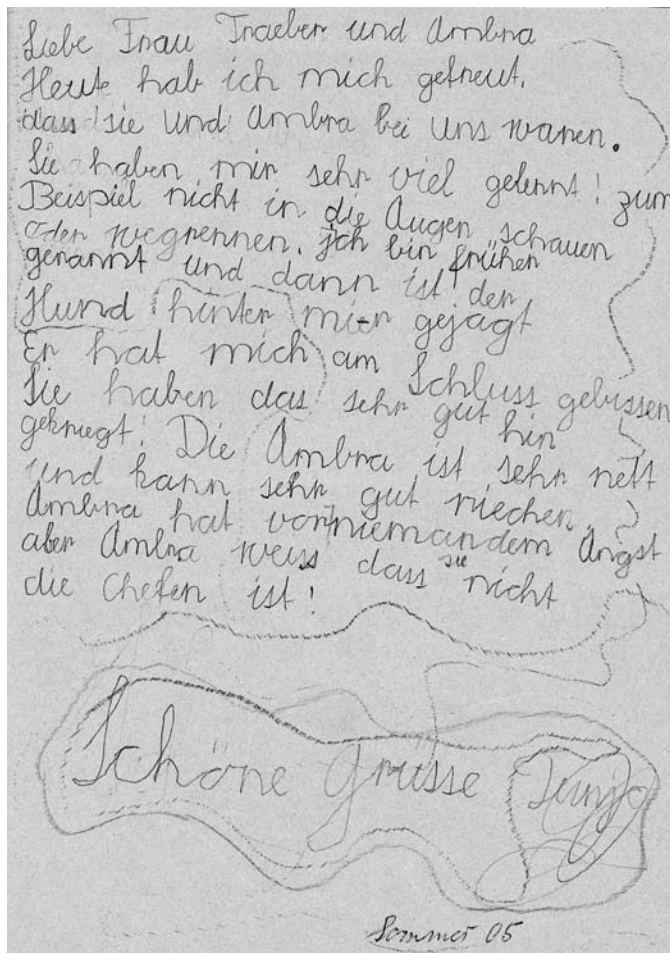 Liebe Frau Traeber und Ambra
Heute hab ich mich gefreut,
dass sie und Ambra bei uns waren.
Sie haben mir sehr viel gelernt! zum
Beispiel nicht in die Augen schauen
oder wegrennen. Ich bin früher
gerannt und dann ist der
Hund hinter mier gejagt
Er hat mich am Schluss gebissen
Sie haben das sehr gut hin
gekriegt! Die Ambra ist sehr nett
und kann sehr gut riechen,
Ambra hat vor niemandem Angst
aber Ambra weiss dass sie nicht
die Chefen ist!
Schöne Grüsse
Sommer 05